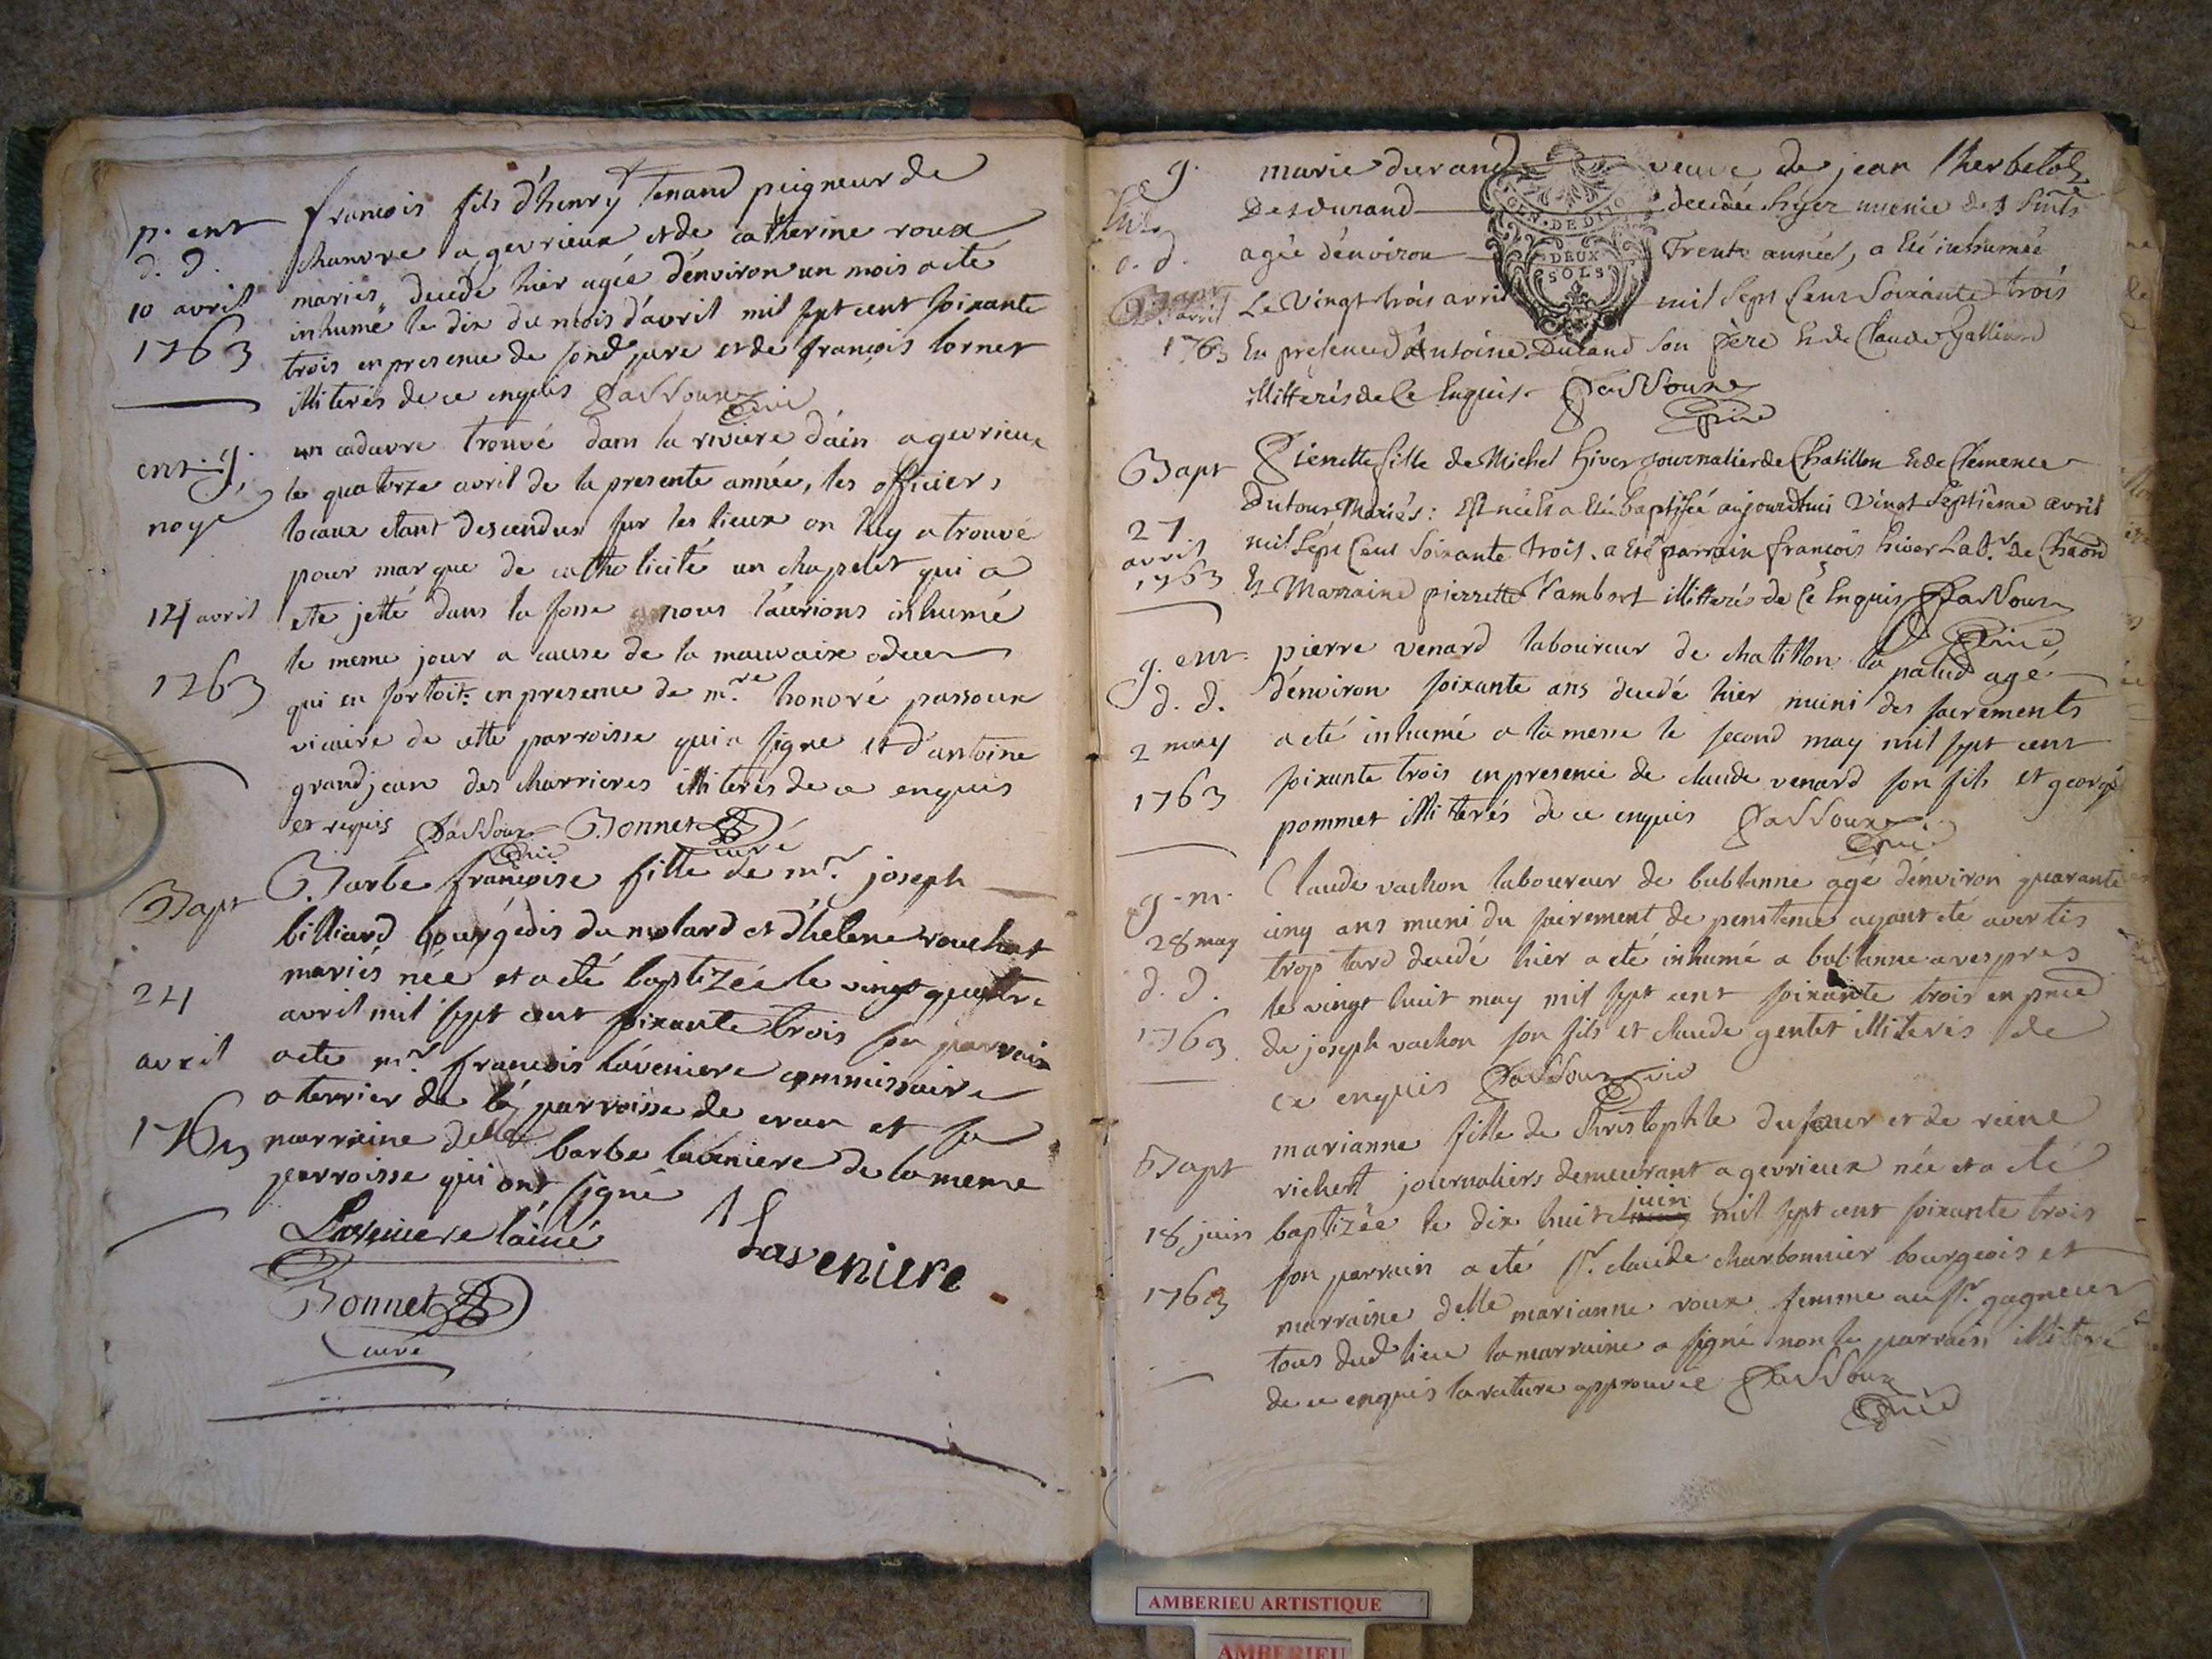 p. ent
d. d.
10 avril
1763
francois fils d'henry tenand peigneur de
chanvre a gevrieux et de catherine roux
mariés, decedé hier agée d'environ un mois a eté
inhumé le dix du mois d'avril mil sept cent soixante
trois en presence de sond pere et de françois lornet
illiterés de ce enquis Passoux vic
ent. g.
noyé
14 avril
1763
un cadavre trouvé dans la riviere d'ain a gevrieux
le quatorze avril de la presente année, les officiers
locaux etant descendus sur les lieux on luy a trouvé
pour marque de catholicité un chapelet qui a
eté jetté dans la fosse nous l'aurions inhumé
le meme jour a cause de la mauvaise odeur
qui en sortoit. en presence de m.re honoré passoux
vicaire de cette parroisse qui a signé et d'antoine
grandjean des charrieres illiterés de ce enquis
et requis Passoux vic Bonnet curé
Bapt
24
avril
1763
Barbe françoise fille de m.r joseph
billiard bourgeois du molard et d'helene rouchet
mariés née et a eté baptizée le vingt quatre
avril mil sept cent soixante trois son parrain
a eté m.r francois laveniere commissaire
a terrier de la parroisse de cran et sa
marraine delle barbe laveniere de la meme
parroisse qui ont signé
Laveniere l'ainé
Laveniere
Bonnet
curé
g.
d. d.
avril
1763
marie durand veuve de jean therbetol
Desdurand decedée hyer munie des Smts
agée d'environ Trente années, a Eté inhumée
Le Vingt trois avril mil Sept Cent Soixante trois
En presence d'Antoine Durand Son Père Et de Claude Galliend
illitterés de Ce Enquis. Passoux
vic
GEN. DE DIJO
DEUX
SOLS
Bapt
27
avril
1763
Pierrette fille de Michel hiver journalier de Chatillon Et de Clemence
Dutour Mariés: Est née Et a Eté baptisée aujourd'hui Vingt Septième avril
mil Sept Cent Soixante trois. a Eté parrain françois hiver Lab.r de Chaon
Et Marraine pierrette Vambort illitterés de Ce Enquis Passoux
vic
g. ent.
d. d.
2 may
1763
pierre venard laboureur de chatillon la palud agé
d'environ soixante ans decedé hier muni des sacrements
a eté inhumé a la messe le second may mil sept cent
soixante trois en presence de claude venard son fils et george
pommet illiterés de ce enquis Passoux
vic
g. m.
28 may
d. d.
1763
Claude vachon laboureur de bublanne agé d'environ quarante
cinq ans muni du sacrement de penitence ayant eté avertis
trop tard decedé hier a eté inhumé a bublanne a vespres
le vingt huit may mil sept cent soixante trois en prece
de joseph vachon son fils et claude gentet illiterés de
ce enquis Passoux vic
Bapt
18 juin
1763
marianne fille de christophle dufour et de reine
richert journaliers demeurant a gevrieux née et a eté
baptizée le dix huit juin mil sept cent soixante trois
son parrain a eté s.r claude charbonnier bourgeois et
marraine delle marianne roux femme au s.r gagneur
tous dud lieu la marraine a signé non le parrain illiteré
de ce enquis la rature approuvée Passoux
vic
AMBERIEU ARTISTIQUE
AMBERIEU